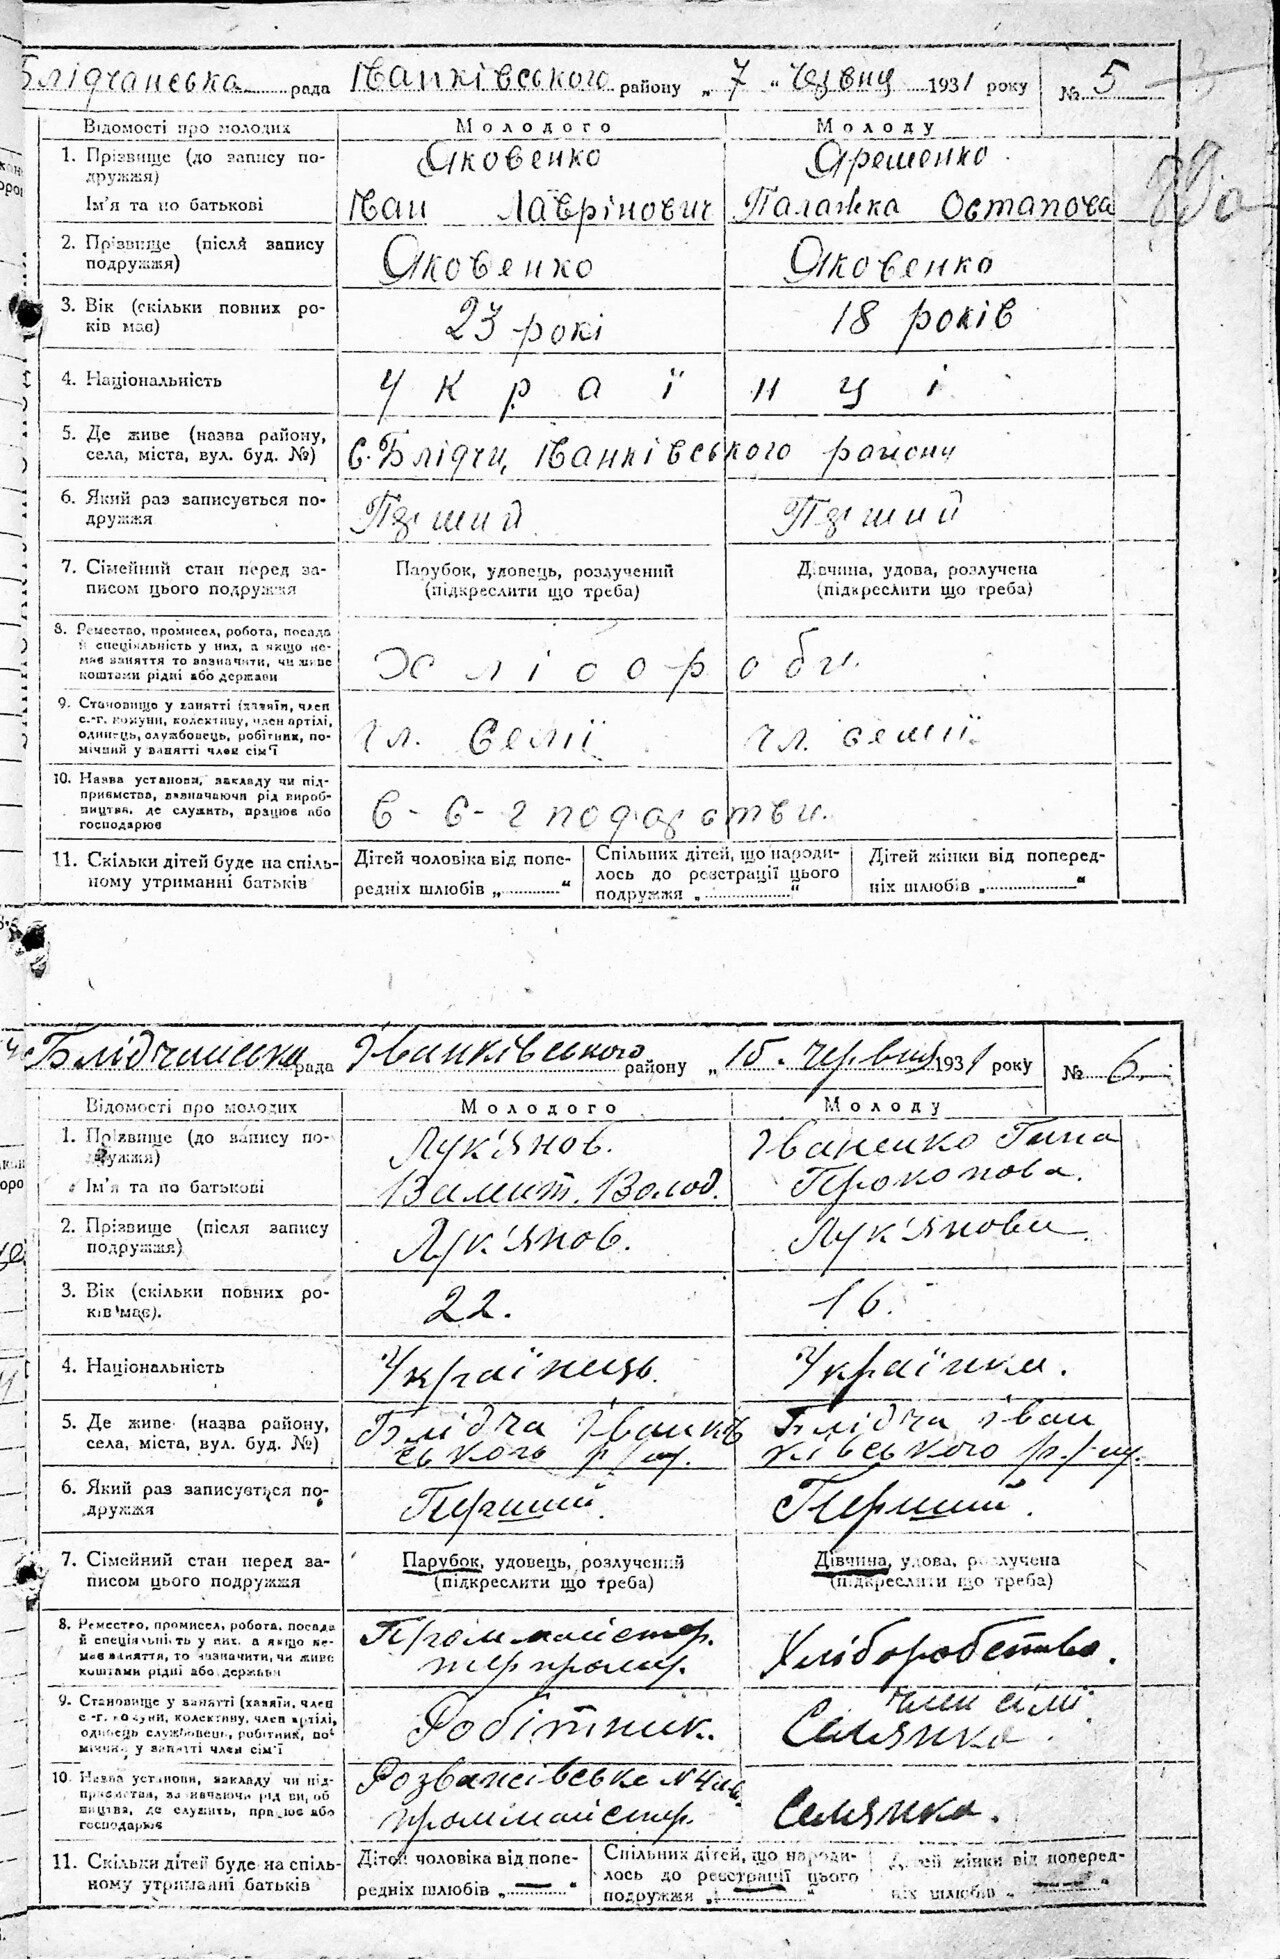 Блідчанська рада Іванківського району „ 7 " червня 1931 року № 5
Відомості про молодих Молодого Молоду
1. Прізвище (до запису по- Яковенко Ярешенко
дружжя)
Ім'я та по батькові Іван Лаврінович Палажка Остапова
2. Прізвище (після запису Яковенко Яковенко
подружжя)
3. Вік (скільки повних ро- 23 рокі 18 років
ків має)
4. Національність Українці
5. Де живе (назва району, с. Блідчи, Іванківського району
села, міста, вул. буд. №)
6. Який раз записується по- Перший Перший
дружжя
7. Сімейний стан перед за- Парубок, удовець, розлучений Дівчина, удова, розлучена
писом цього подружжя (підкреслити що треба) (підкреслити що треба)
8. Ремество, промисел, робота, посада
й спеціяльність у них, а якщо не-
має заняття то зазначити, чи живе Хлібороби
коштами рідні або держави
9. Становище у занятті (хазяїн, член
с.-г. комуни, колективу, член артілі, чл. семії чл. семії
одинець, службовець, робітник, по-
мічний у занятті член сім'ї
10. Назва установи, закладу чи під-
приємства, зазначаючи рід вироб- с-с-господарстви
ництва, де служить, працює або
господарює
11. Скільки дітей буде на спіль- Дітей чоловіка від попе- Спільних дітей, що народи- Дітей жінки від поперед-
ному утриманні батьків редніх шлюбів „ “ лось до реєстрації цього ніх шлюбів „ “
подружжя „ “
Блідчанська рада Іванківського району „ 15. червня 1931 року № 6.
Відомості про молодих Молодого Молоду
1. Прізвище (до запису по- Лук'янов. Іваненко Ганна
дружжя)
Ім'я та по батькові Валент. Волод. Прокопова.
2. Прізвище (після запису Лук'янов. Лук'янова
подружжя)
3. Вік (скільки повних ро- 22. 16.
ків має).
4. Національність Українець. Українка.
5. Де живе (назва району, Блідча Іванків Блідча Іван
села, міста, вул. буд. №) ського р/ну. ківського р./ну.
6. Який раз записується по- Перший. Перший.
дружжя
7. Сімейний стан перед за- Парубок, удовець, розлучений Дівчина, удова, розлучена
писом цього подружжя (підкреслити що треба) (підкреслити що треба)
8. Ремество, промисел, робота, посада Проммайстер.
й спеціяльність у них, а якщо не-
має заняття, то зазначити, чи живе Хліборобство.
коштами рідні або держави
9. Становище у занятті (хазяїн, член член сімї
с.-г. комуни, колективу, член артілі, Робітник. Селянка.
одинець службовець, робітник, по-
мічний у занятті член сім'ї
10. Назва установи, закладу чи під- Розважівське
приємства, зазначаючи рід вироб проммайстер. Селянка.
ництва, де служить, працює або
господарює
11. Скільки дітей буде на спіль- Дітей чоловіка від попе- Спільних дітей, що народи- Дітей жінки від поперед-
ному утриманні батьків редніх шлюбів „ — “ лось до реєстрації цього ніх шлюбів „ — “
подружжя „ — “